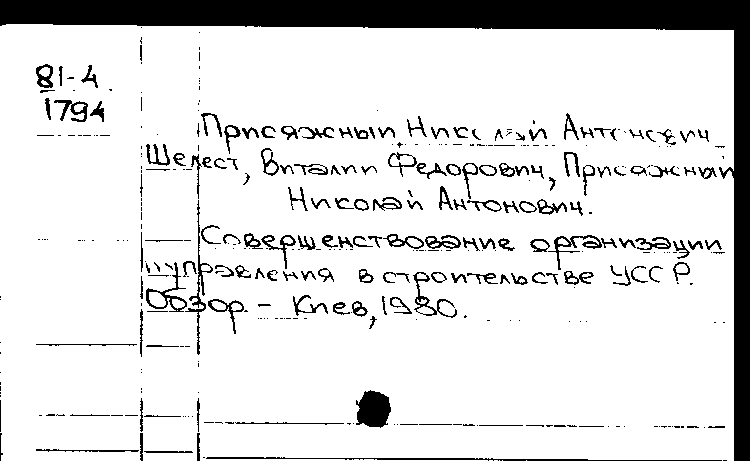 81-4
1794
Присяжный Николай Антонович
Шелест, Виталий Федорович, Присяжный
Николай Антонович.
Совершенствование организации
и управления в строительстве УССР.
Обзор. – Киев, 1980.